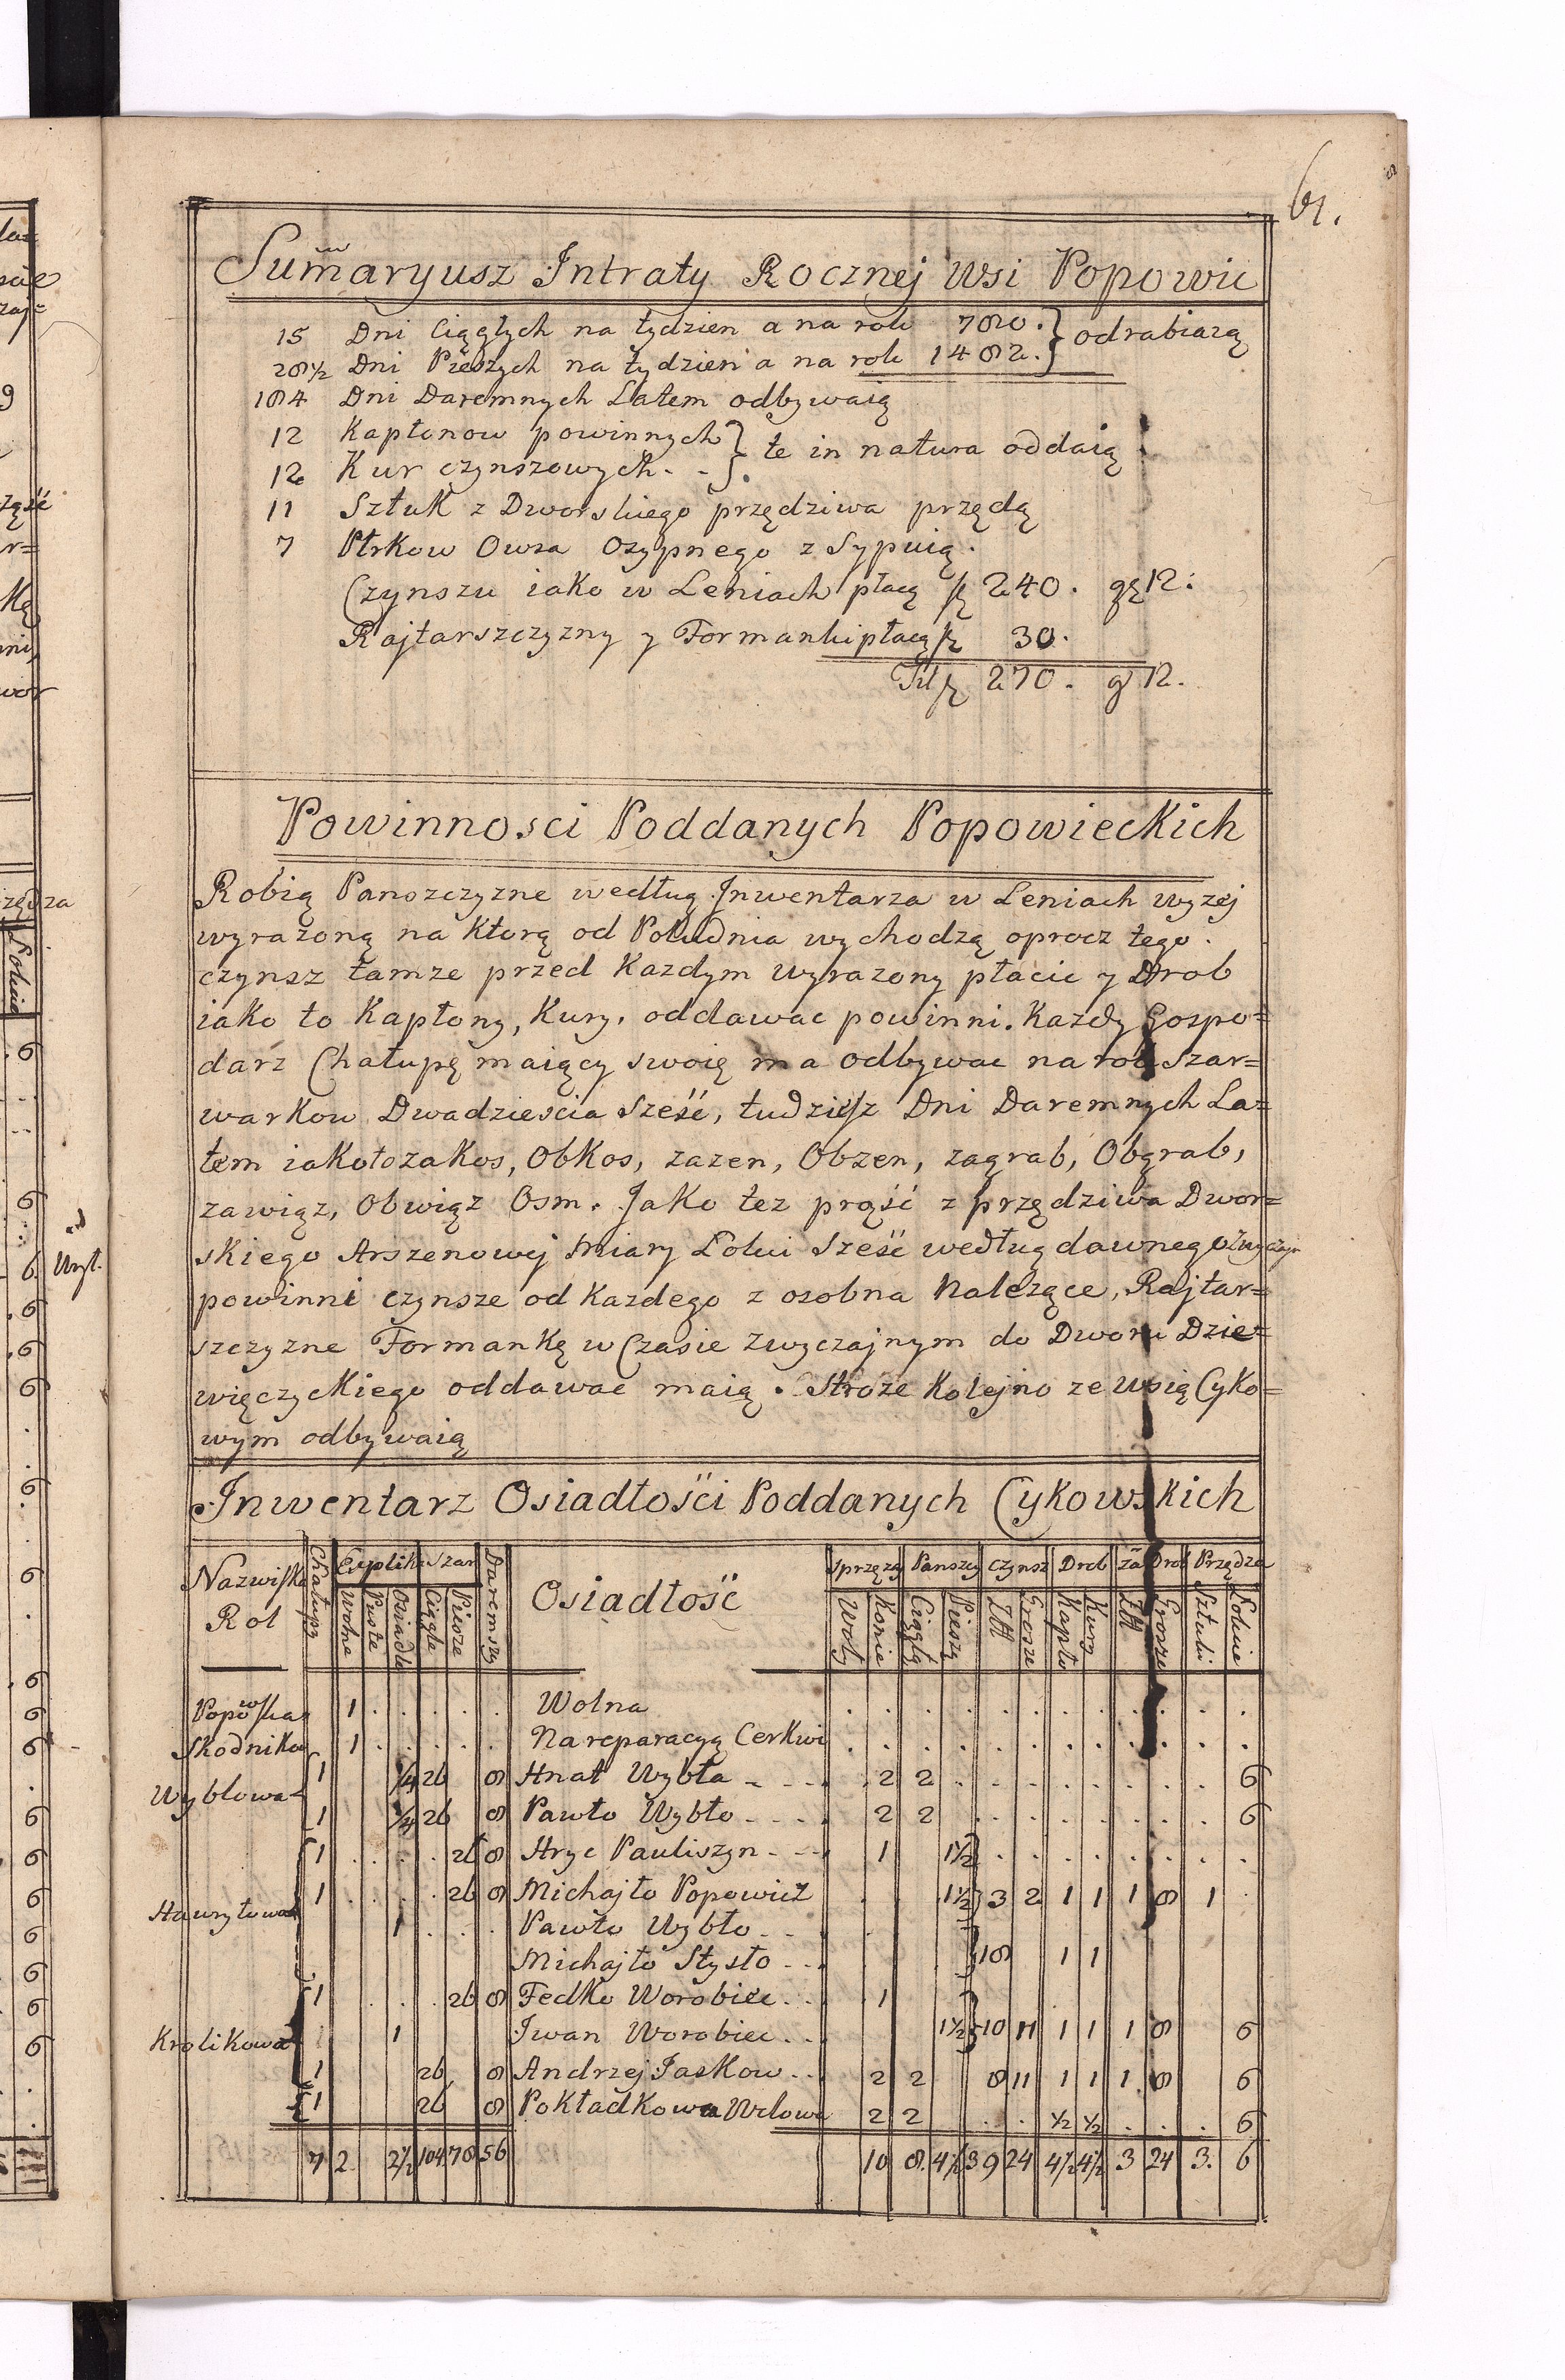 61.
Sum̃aryusz Intraty Rocznej Wsi Popowic
15 Dni Ciągłych na tydzien a na rok 780. } odrabiaią
28½ Dni Pieszych na tydzien a na rok 1482. }
184 Dni Daremnych Latem odbywaią
12 Kapłonow powinnych } te in natura oddaią
12 Kur czynszowych. - }
11 Sztuk z Dworskiego przędziwa przędą
7 Płrkow Owsa Osypnego z Sypuią.
Czynszu iako w Leniach płacą 240. 12.
Rajtarszczyzny y Formanki płacą 30.
270. g 12.
Powinnosci Poddanych Popowieckich
Robią Panszczyzne według Inwentarza w Leniach wyzej
wyrazoną na Ktorą od Południa wychodzą oprocz tego.
czynsz tamze przed Kazdym wyrazony płacic y Drob
iako to Kapłony, Kury, oddawac powinni. Kazdy Gospo=
darz Chałupę maiący swoię ma odbywac na rok Szar=
warkow Dwadziescia Sześć, tudziesz Dni Daremnych La=
tem iakotozakos, Obkos, zazen, Obzen, zagrab, Obgrab,
zawiąz, Obwiąz Osm. Jako tez prząść z przędziwa Dwor=
skiego Arszenowej Miary Łokci Sześć według dawnego
powinni czynsze od Kazdego z osobna Nalezące, Rajtar=
szczyzne Formankę w Czasie zwyczajnym do Dworu Dzie=
więczyckiego oddawac maią. Stroze Kolejno ze wsią Cyko=
wym odbywaią
Inwentarz Osiadłości Poddanych Cykowskich
Nazwiska Rol Chałupy Wolne Puste Osiadłe Szar Ciągłe Piesze Daremszy Osiadłość Sprzęzay Woły Konie Panszcz Ciągła Piesza Czynsz Zł Grosze Drob Kapło Kury za Drob Zł Grosze Przędza Sztuki Łokcie
Popowska 1 . . . . . Wolna . . . . . . . . . . . .
Skodnikow 1 . . . . . Na reparacyą Cerkwi . . . . . . . . . . . .
1 ¼ 26 8 Hnat Wybła - - - . 2 2 . . . . . . . . 6
Wybłowa
1 ¼ 26 8 Pawło Wybło - - - . 2 2 . . . . . . . . 6
1 . . . . 26 8 Hryc Pauliszyn - - - 1 1½ . . . . . . . .
1 . . . . 26 8 Michajło Popowicz . 1½ 3 2 1 1 1 8 1 .
Hawryłowa
1 . . . Pawło Wybło - -
Michajło Stysło - - . 18 1 1
1 . . . 26 8 Fedko Worobiec . . . 1
Krolikowa 1 Iwan Worobiec . . . 1½ 10 11 1 1 1 8 6
1 26 8 Andrzej Jaskow . . . 2 2 8 11 1 1 1 8 6
1 26 8 Pokładkowa Wdowa 2 2 . . ½ ½ . . . 6
7 2 2½ 104 78 56 10 8 4½ 39 24 4½ 4½ 3 24 3. 6